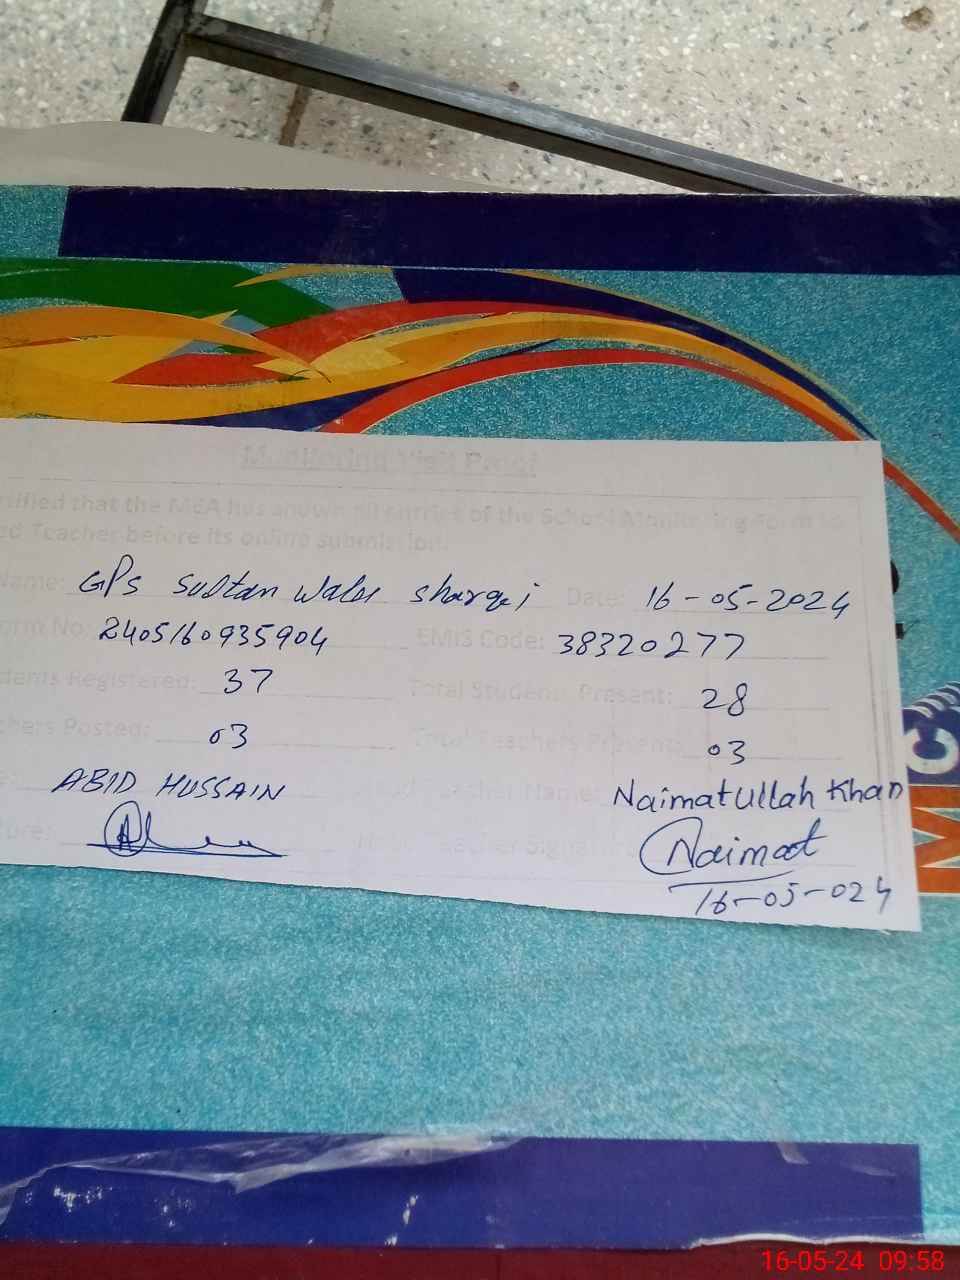 Monitoring Visit Proof
rtified that the MEA has shown all entries of the School Monitoring Form to
ed Teacher before its online submission.
Name: GPS Sultan Wala Sharqi Date: 16-05-2024
orm No: 2405160935904 EMIS Code: 38320277
dents Registered: 37 Total Students Present: 28
chers Posted: 03 Total Teachers Present: 03
e: ABID HUSSAIN Head Teacher Name: Naimatullah Khan
ture: Head Teacher Signature: Naimat
16-05-024
MC
16-05-24 09:58